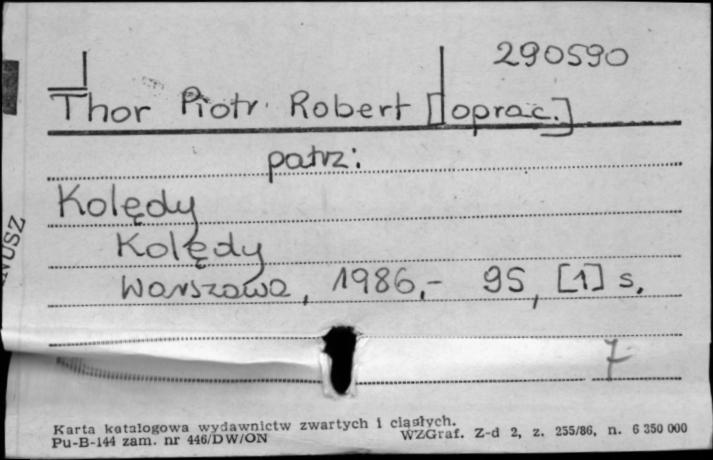 290590
Thor Piotr Robert [oprac.]
patrz:
Kolędy
Kolędy
Warszawa, 1986.- 95, [1] s.
7
Karta katalogowa wydawnictw zwartych i ciągłych.
Pu-B-144 zam. nr 446/DW/ON
WZGraf. Z-d 2, z. 255/86, n. 6 350 000